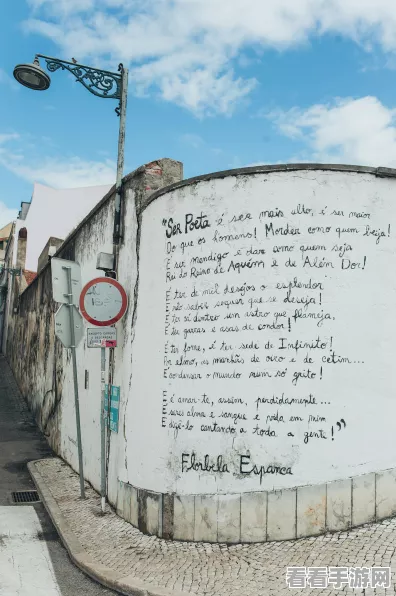 "Ser Poeta é ser mais alto, é ser maior
Do que os homens! Morder como quem beija!
É ser mendigo e dar como quem seja
Rei do Reino de Aquém e de Além Dor!
É ter de mil desejos o esplendor
E não saber sequer que se deseja!
É ter cá dentro um astro que flameja,
É ter garras e asas de condor!
É ter fome, é ter sede de Infinito!
Por elmo, as manhãs de oiro e de cetim...
É condensar o mundo num só grito!
E é amar-te, assim, perdidamente...
É seres alma e sangue e vida em mim
E dizê-lo cantando a toda a gente!"
Florbela Espanca
看看手游网